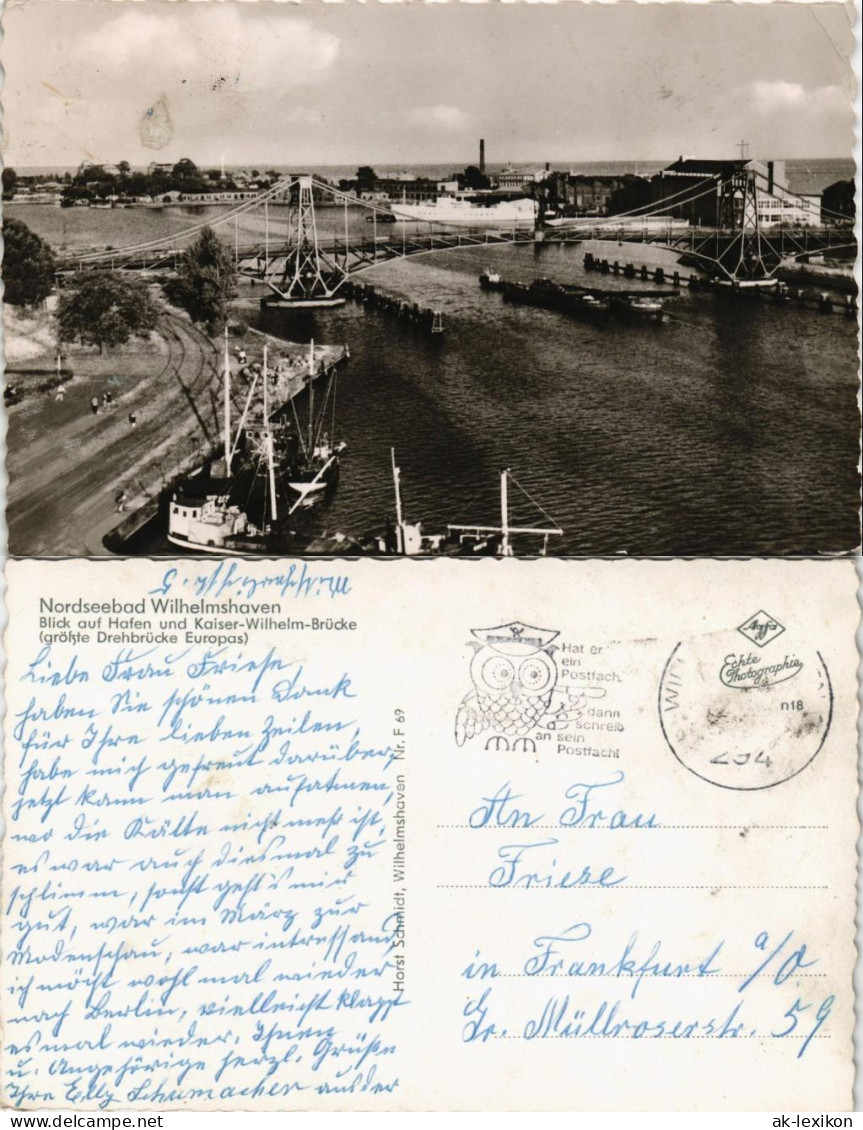 Nordseebad Wilhelmshaven
Blick auf Hafen und Kaiser-Wilhelm-Brücke
(größte Drehbrücke Europas)
Liebe Frau Friese
haben Sie schönen Dank
für Ihre lieben Zeilen,
habe mich gefreut darüber,
jetzt kann man aufatmen,
wo die Kälte nicht mehr ist,
es war auch diesmal zu
schlimm, sonst geht's mir
gut, war im März zur
Modenschau, war intressant,
ich möcht wohl mal wieder
nach Berlin, vielleicht klappt
es mal wieder. Ihnen
u. Angehörige herzl. Grüße
Ihre Elly Schumacher aus der
Horst Schmidt, Wilhelmshaven Nr. F 69
Hat er
ein
Postfach,
dann
schreib
an sein
Postfach!
294
Agfa
Echte
Photographie
n18
An Frau
Friese
in Frankfurt a/O
Gr. Müllroserstr. 59
ak-lexikon